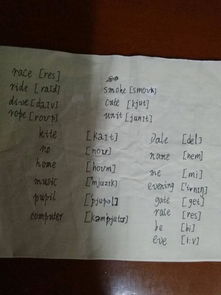 race [res]
ride [raid]
dive [daiv]
rope [roup]
smoke [smouk]
cute [kjut]
unit [junit]
kite [kait]
no [nou]
home [houm]
music ['mjuzik]
pupil [pjupəl]
computer [kəmpjutər]
Dale [del]
name [nem]
me [mi]
evening
gate [get]
rate [res]
he [hi]
eve [i:v]